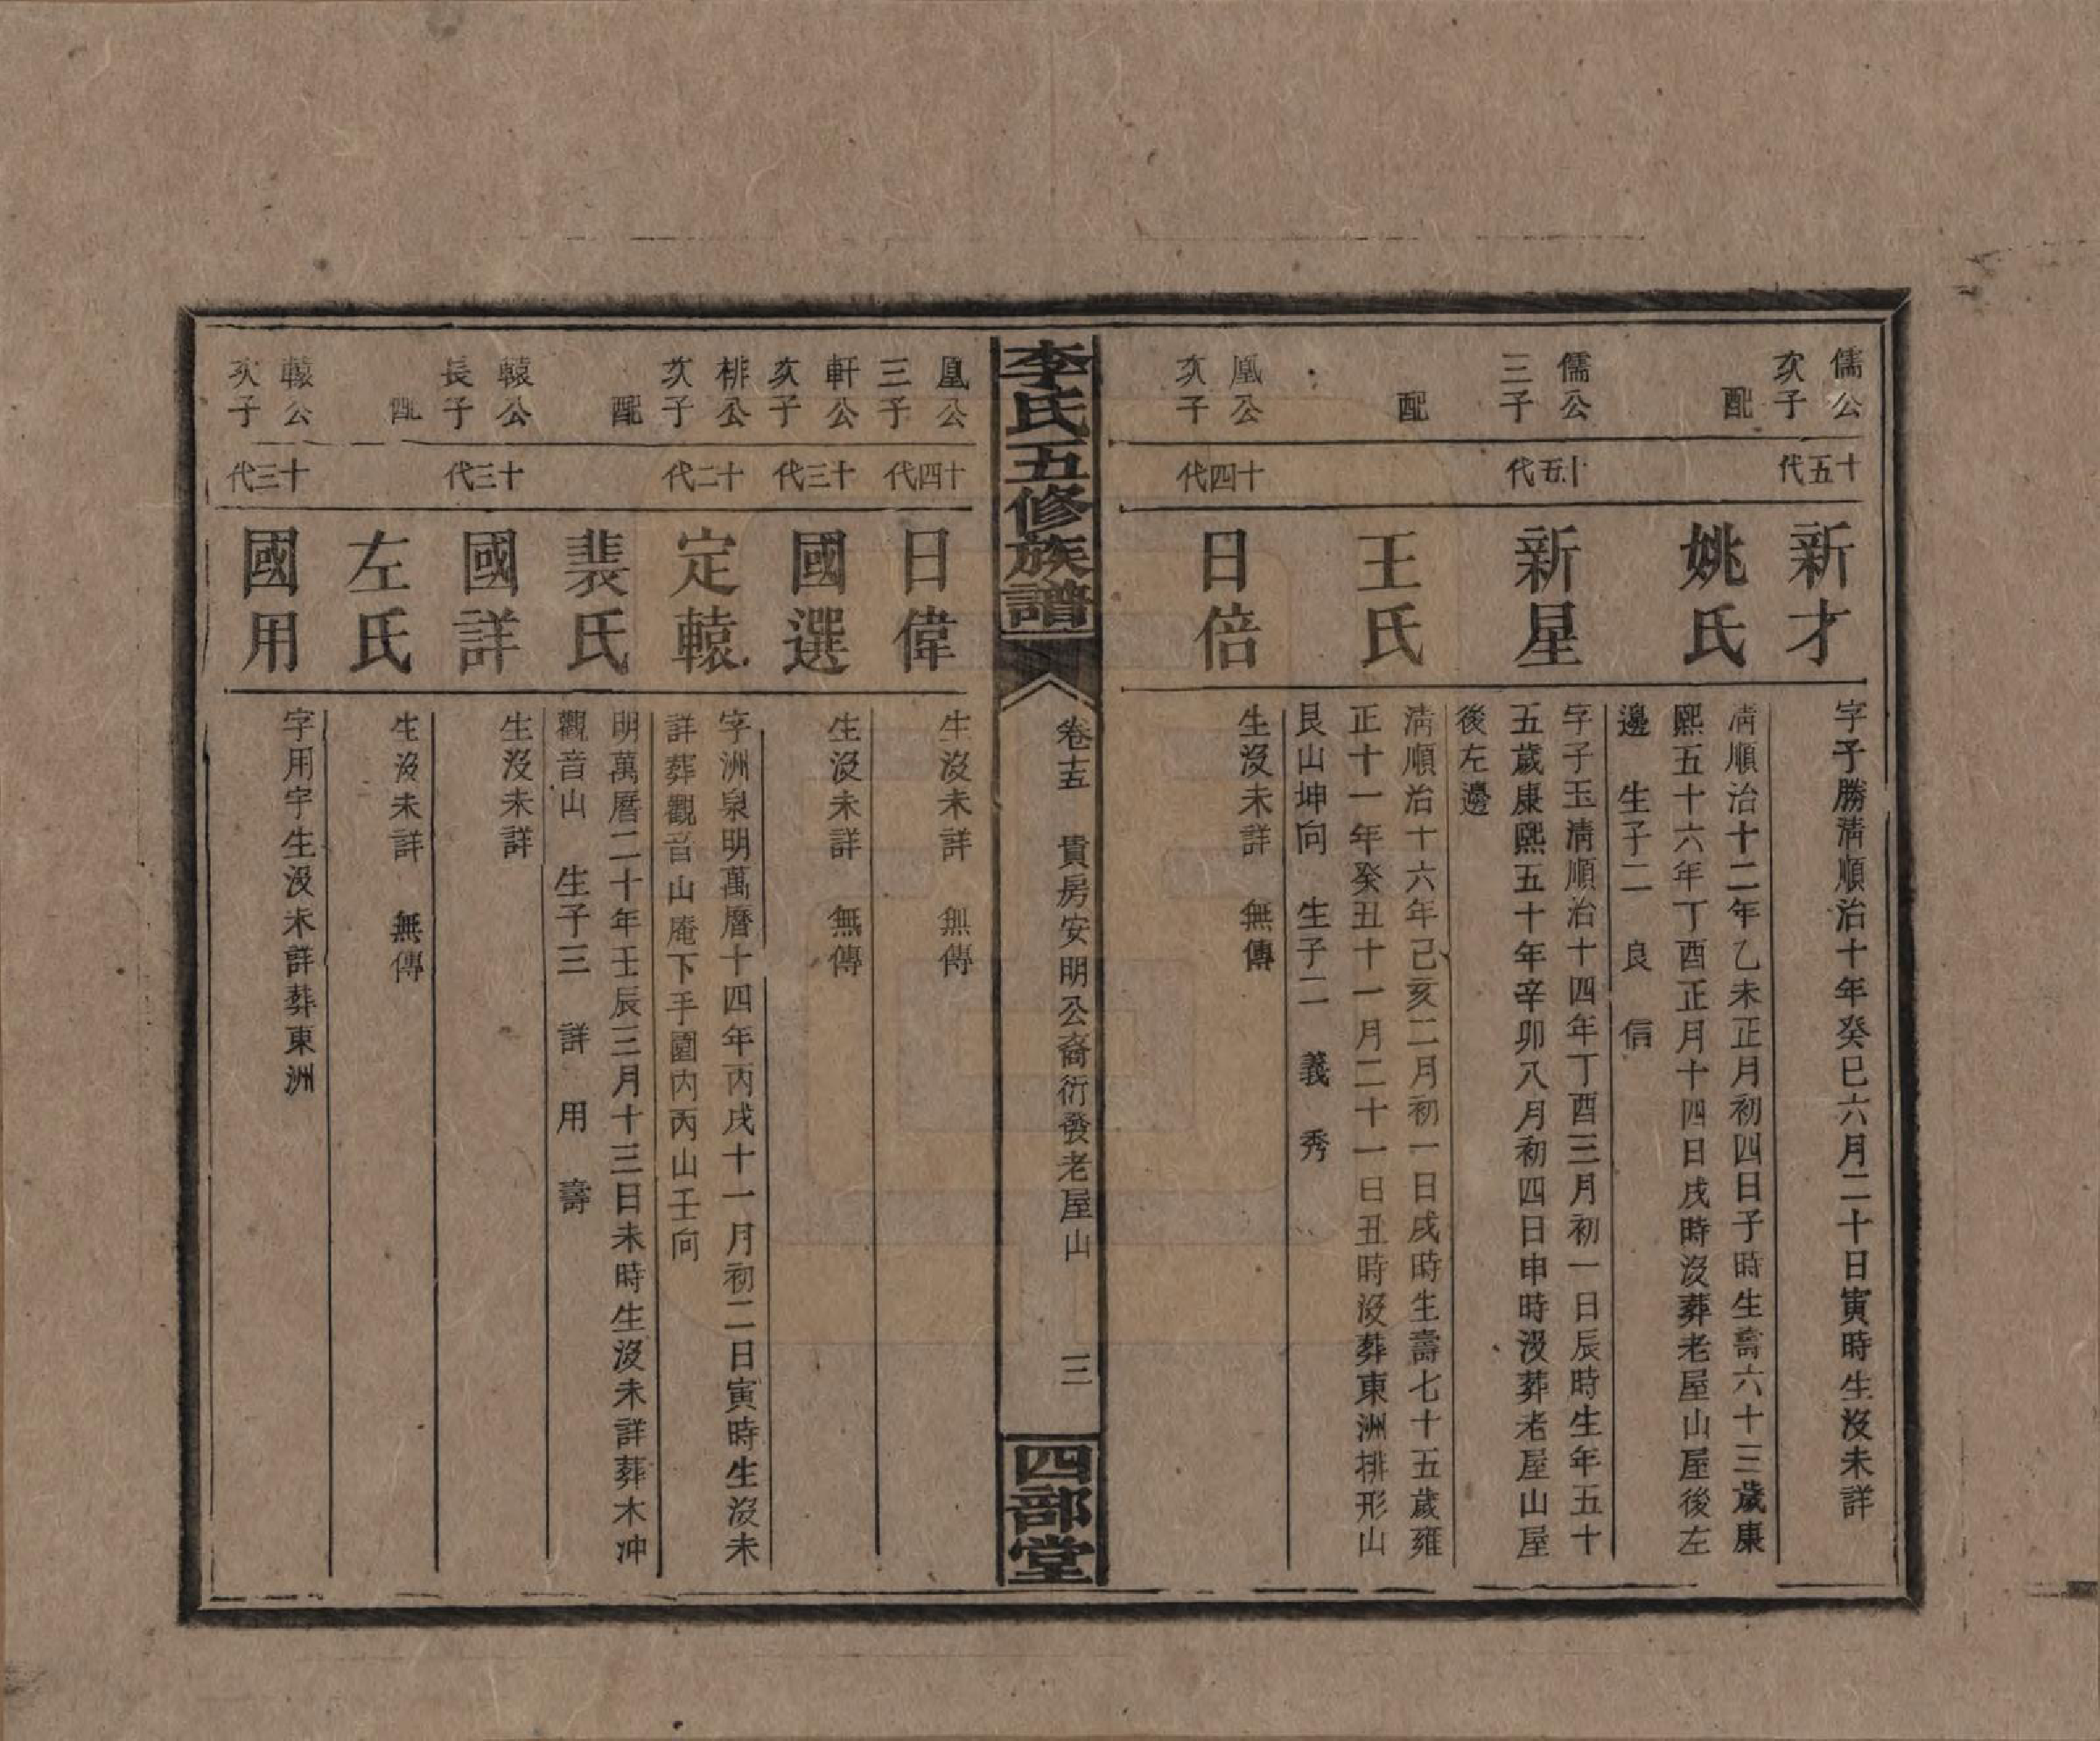 儒公次子
十五代
新才
字子勝清順治十年癸巳六月二十日寅時生沒未詳
配
姚氏
清順治十二年乙未正月初四日子時生壽六十三歲康
熙五十六年丁酉正月十四日戌時沒葬老屋山屋後左
邊 生子二 良 信
儒公三子
十五代
新星
字子玉清順治十四年丁酉三月初一日辰時生年五十
五歲康熙五十年辛卯八月初四日申時沒葬老屋山屋
後左邊
配
王氏
清順治十六年己亥二月初一日戌時生壽七十五歲雍
正十一年癸丑十一月二十一日丑時沒葬東洲排形山
艮山坤向 生子二 義 秀
凰公次子
十四代
日倍
生沒未詳 無傳
李氏五修族譜
卷十五 貴房安明公裔衍發老屋山 三
四部堂
凰公三子
十四代
日偉
生沒未詳 無傳
軒公次子
十三代
國選
生沒未詳 無傳
棑公次子
十二代
定轅
字洲泉明萬曆十四年丙戌十一月初二日寅時生沒未
詳葬觀音山庵下手園内丙山壬向
配
裴氏
明萬曆二十年壬辰三月十三日未時生沒未詳葬木冲
觀音山 生子三 詳 用 壽
轅公長子
十三代
國詳
生沒未詳
配
左氏
生沒未詳 無傳
轅公次子
十三代
國用
字用宇生沒未詳葬東洲